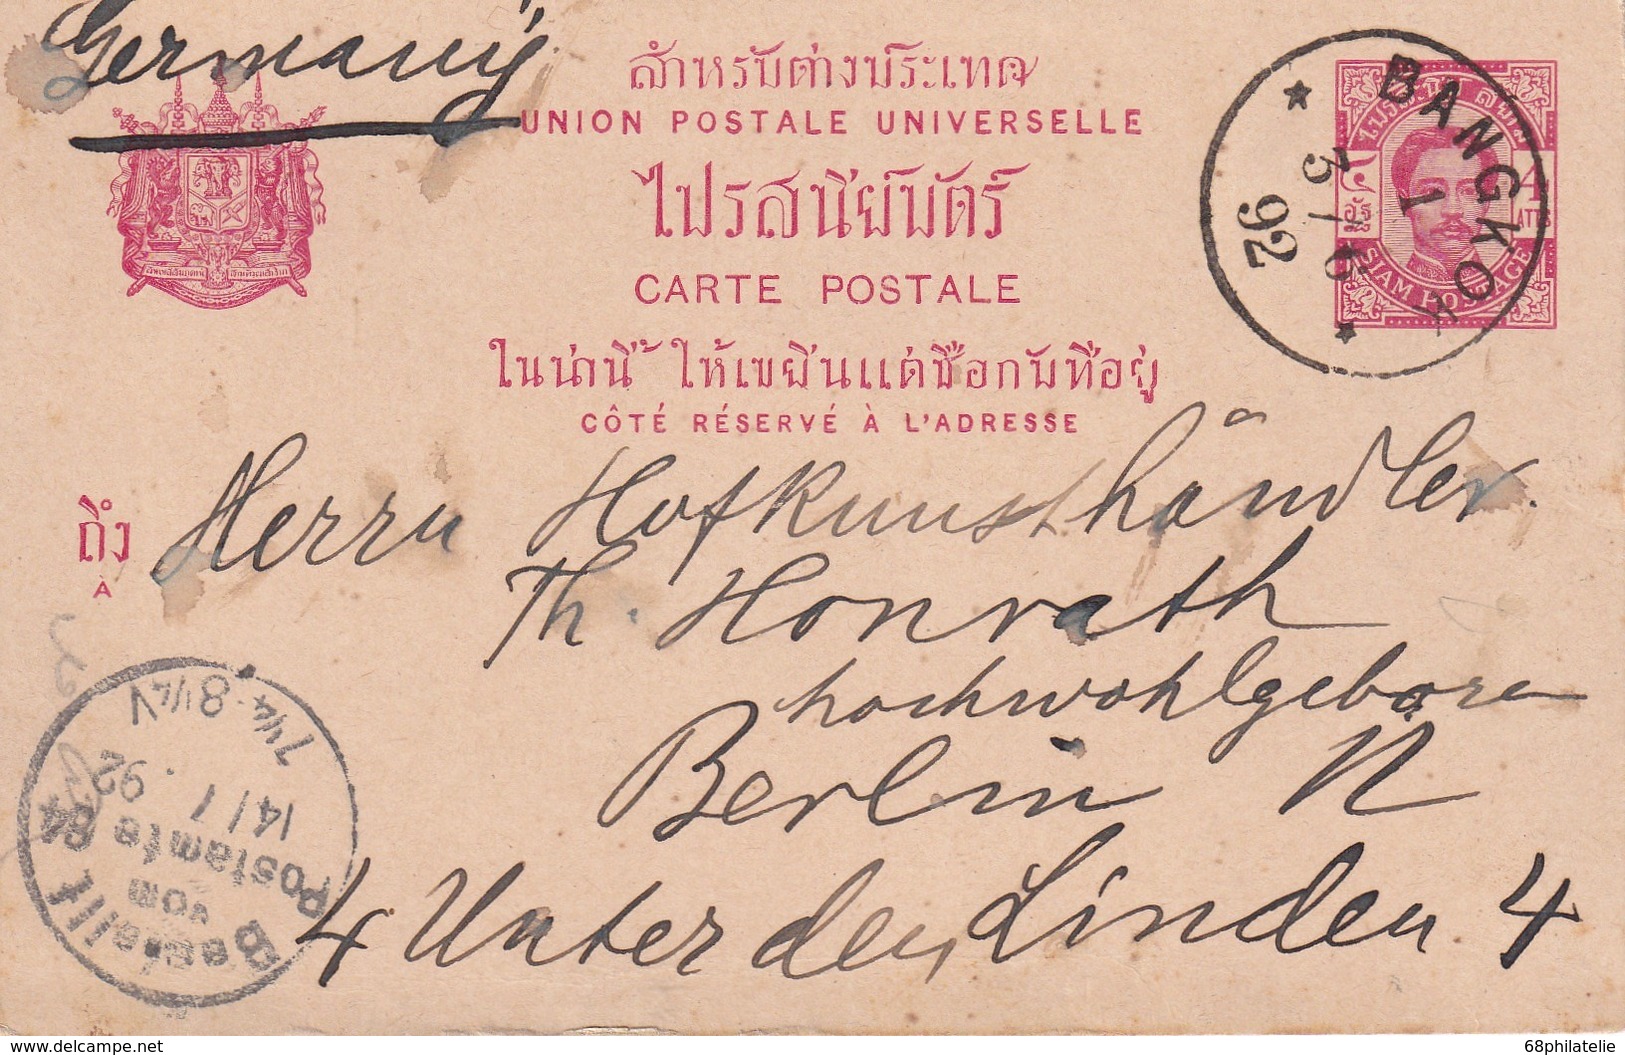 Germany
สำหรับต่างประเทศ
UNION POSTALE UNIVERSELLE
ไปรสนีย์บัตร์
CARTE POSTALE
ในน่านี้ ให้เขยีนแต่ชื่อกับที่อยู่
CÔTÉ RÉSERVÉ À L'ADRESSE
BANGKOK
1
3/6
92
๔
อัฐ
4
ATTS
SIAM POSTAGE
ถึง
À
Herrn Hofkunsthändler.
Th. Honrath
hochwohlgeboren
Berlin N
4 Unter den Linden 4
Bestellt
vom
Postamte 64
14/7
92
7¼-8¼V
www.delcampe.net
68philatelie